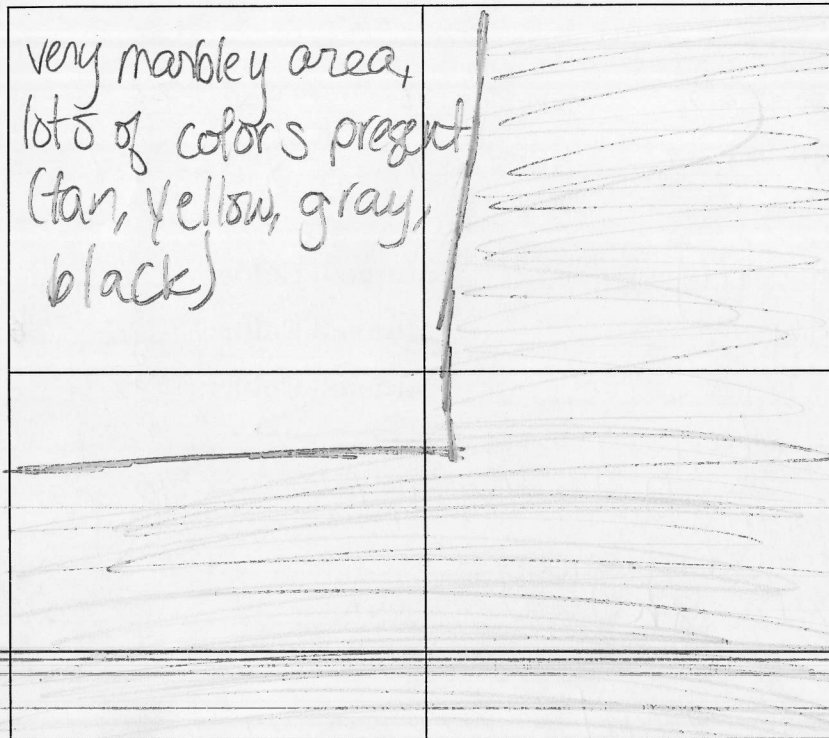 very marbley area,
lots of colors present
(tan, yellow, gray,
black)